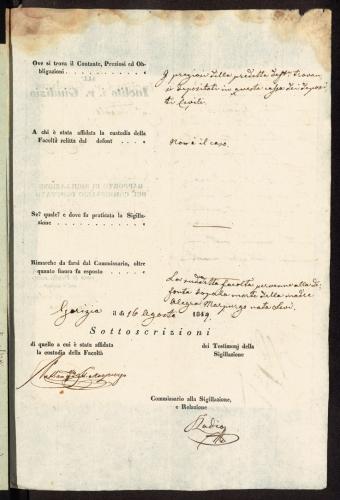 Ove si trova il Contante, Preziosi ed Ob-
bligazioni . . . . . . . . . . . . e
I preziosi della predetta def.ta trovan
si depositati in questa cassa dei deposi
ti Civili.
A chi è stata affidata la custodia della
Facoltà relitta dal defont . . . . . . e
Non è il caso.
Se? quale? e dove fu praticata la Sigilla-
zione . . . . . . . . . . . . . . e
Rimarche da farsi dal Commissario, oltre
quanto fianco fu esposto . . . . . . . e
La suddetta facoltà pervenne alla de
fonta dopo la morte della madre
Allegra Morpurgo nata Levi.
Gorizia li 16 Agosto 1849.
Sottoscrizioni
di quello a cui è stata affidata
la custodia della Facoltà
dei Testimonj della
Sigillazione
Morpurgo
Commissario alla Sigillazione,
e Relazione